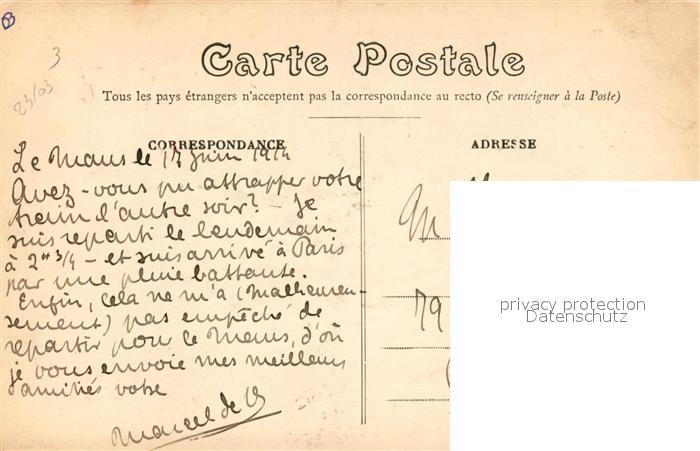 3
23/03
Carte Postale
Tous les pays étrangers n'acceptent pas la correspondance au recto (Se renseigner à la Poste)
CORRESPONDANCE
Le Mans le 17 Juin 1914
Avez-vous pu attrapper votre
train l'autre soir? - Je
suis reparti le lendemain
à 2H 3/4 - et suis arrivé à Paris
par une pluie battante.
Enfin, cela ne m'a (malheureu-
sement) pas empêché de
repartir pour le Mans, d'où
je vous envoie mes meilleurs
amitiés votre
Marcel de
ADRESSE
79
privacy protection
Datenschutz